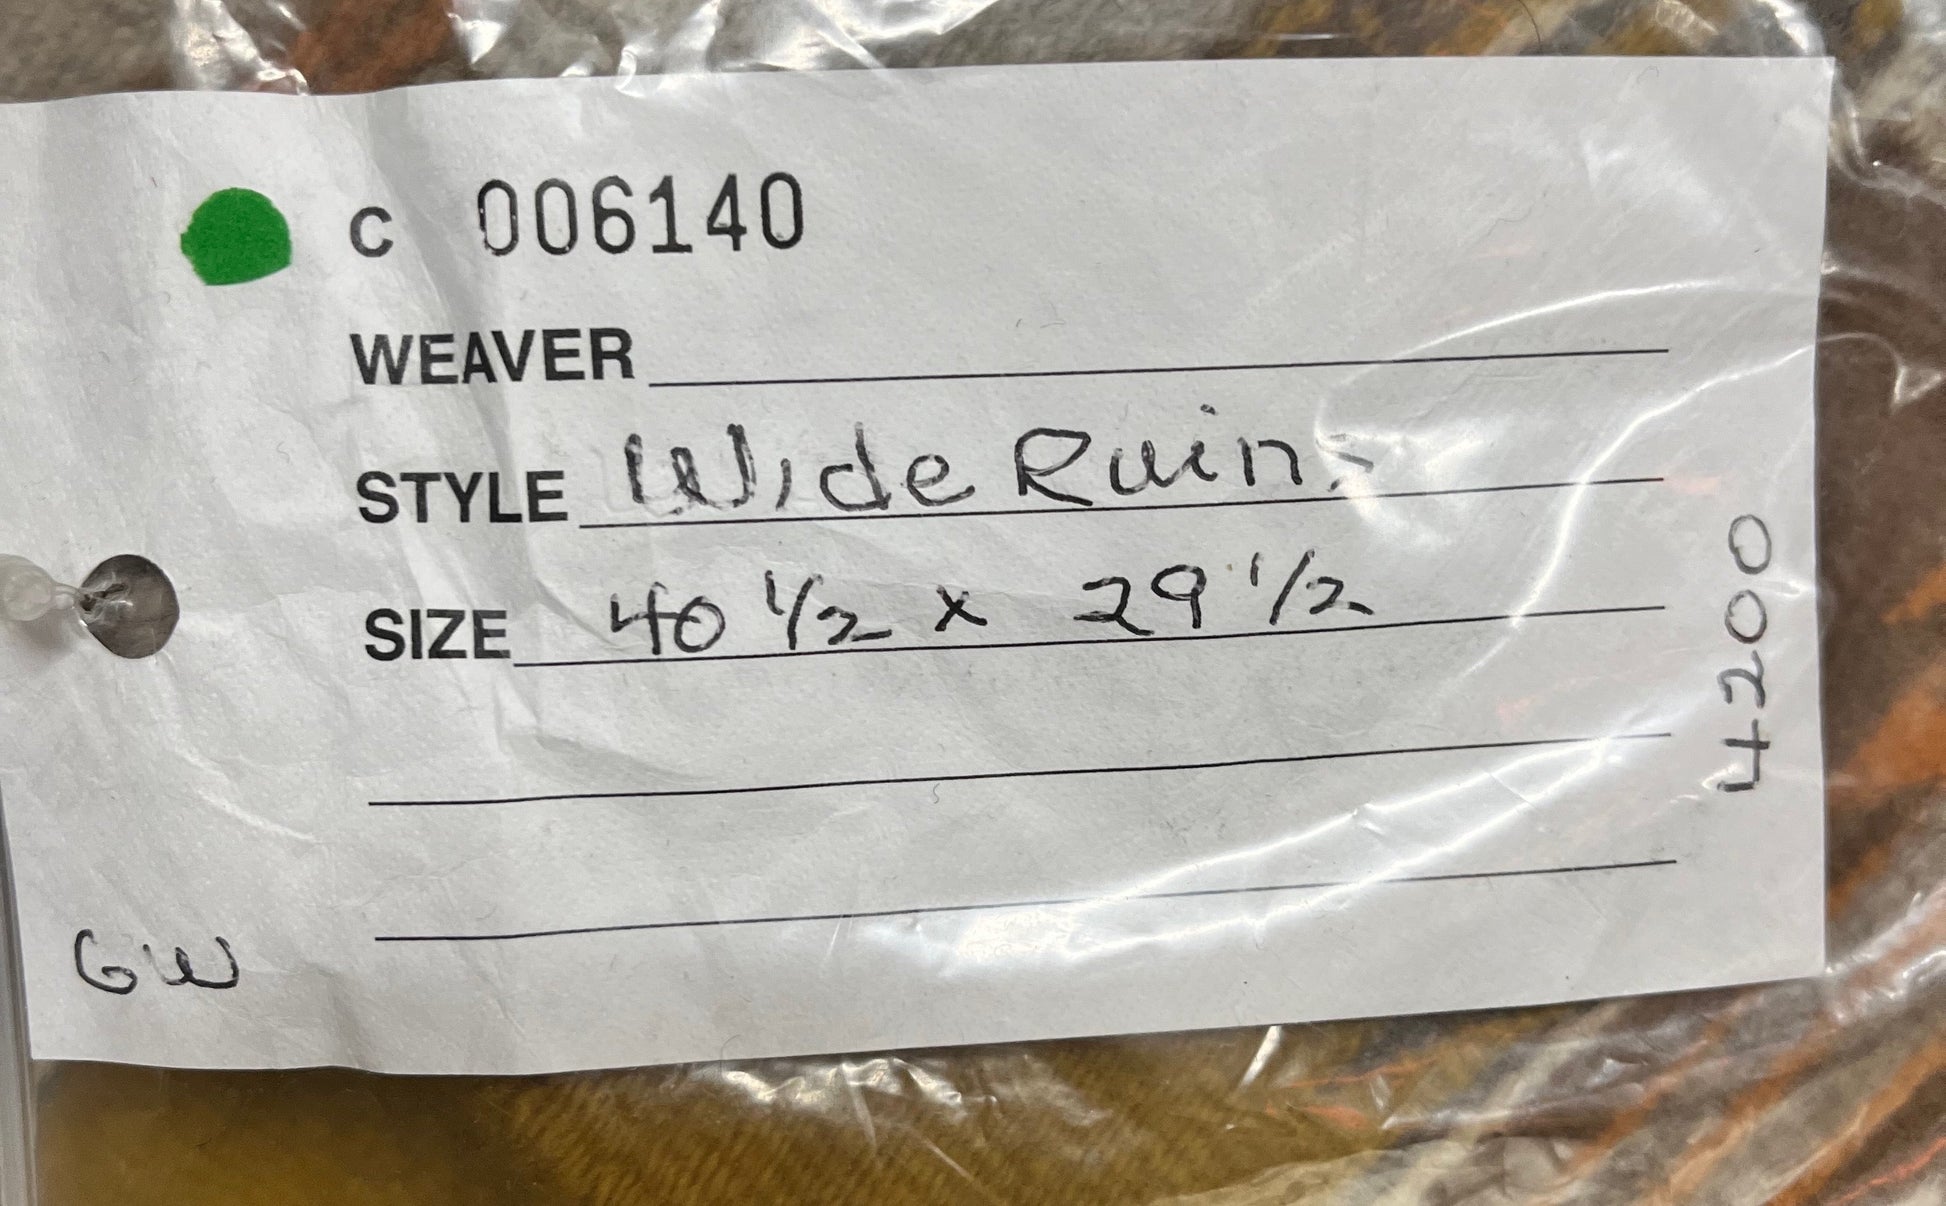 C 006140
WEAVER
STYLE Wide Ruins
SIZE 40 1/2 x 29 1/2
4200
GW